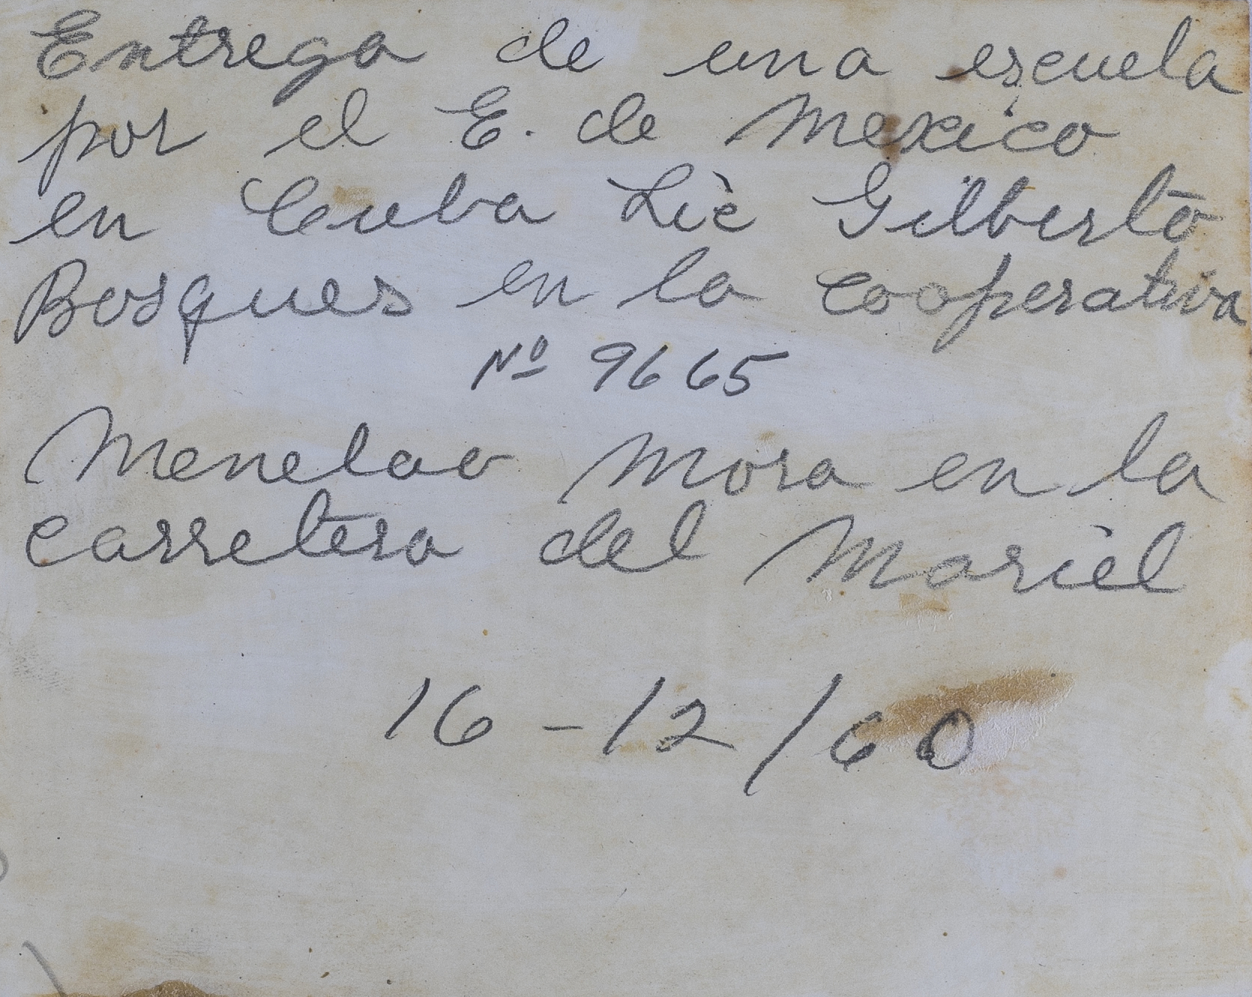 Entrega de una escuela
por el E. de Mexico
en Cuba Lic Gilberto
Bosques en la cooperativa
Nº 9665
Menelao Mora en la
carretera del Mariel
16-12/60